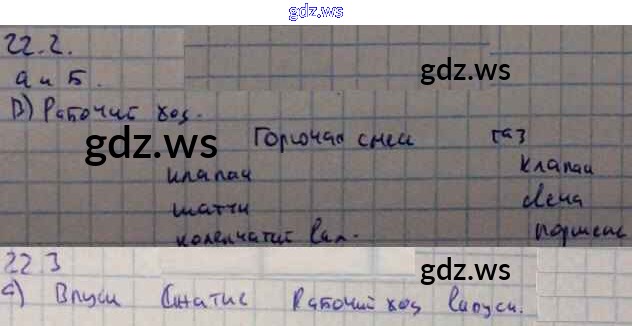 gdz.ws
22.2.
а и Б.
gdz.ws
В) Рабочий ход.
gdz.ws
Горючая смеси газ
клапан клапан
шатун свеча
коленчатий вал. поршень
22 3 gdz.ws
а) Впуск Сжатие Рабочий ход Выпуск.